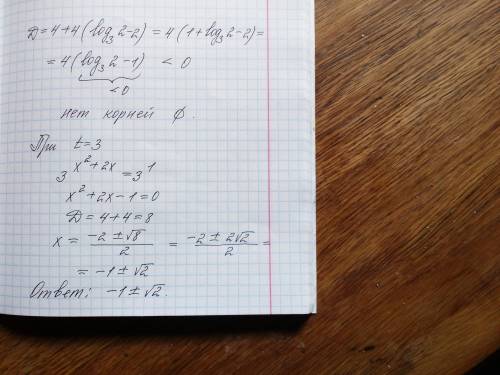 D = 4 + 4(log₃2 - 2) = 4(1 + log₃2 - 2) =
= 4(log₃2 - 1) < 0
< 0
нет корней ∅.
При t = 3
3^(x² + 2x) = 3^1
x² + 2x - 1 = 0
D = 4 + 4 = 8
x = (-2 ± √8)/2 = (-2 ± 2√2)/2 =
= -1 ± √2
Ответ: -1 ± √2.